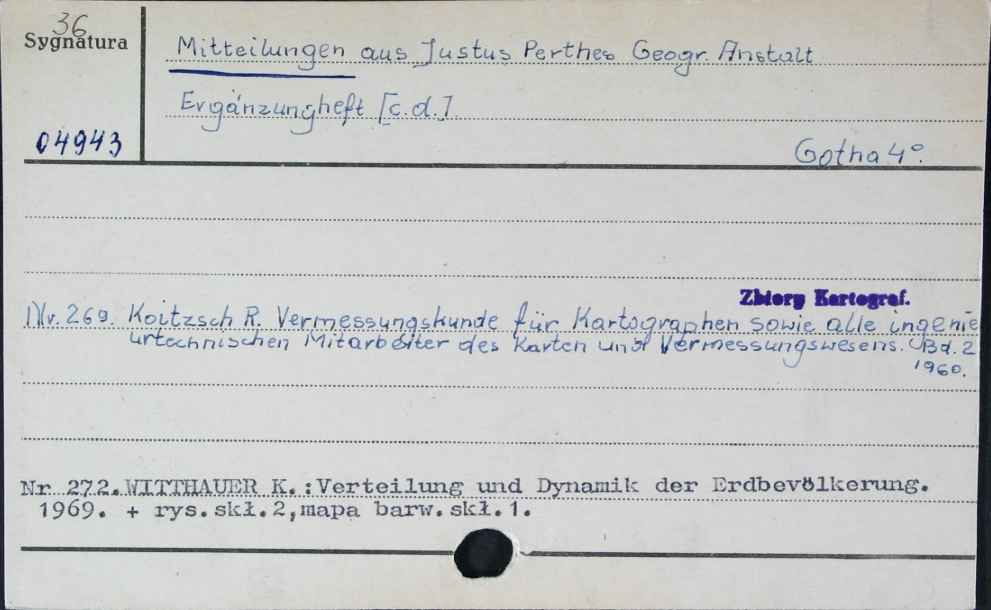 36
Sygnatura
Mitteilungen aus Justus Perthes Geogr. Anstalt
Ergänzungheft [c.d.]
04943
Gotha 4°.
Zbiory Kartograf.
Nr. 269. Koitzsch R. Vermessungskunde für Kartographen sowie alle ingenie
urtechnischen Mitarbeiter des Karten und Vermessungswesens. Bd. 2
1960.
Nr 272. WITTHAUER K.: Verteilung und Dynamik der Erdbevölkerung.
1969. + rys. skł. 2, mapa barw. skł. 1.